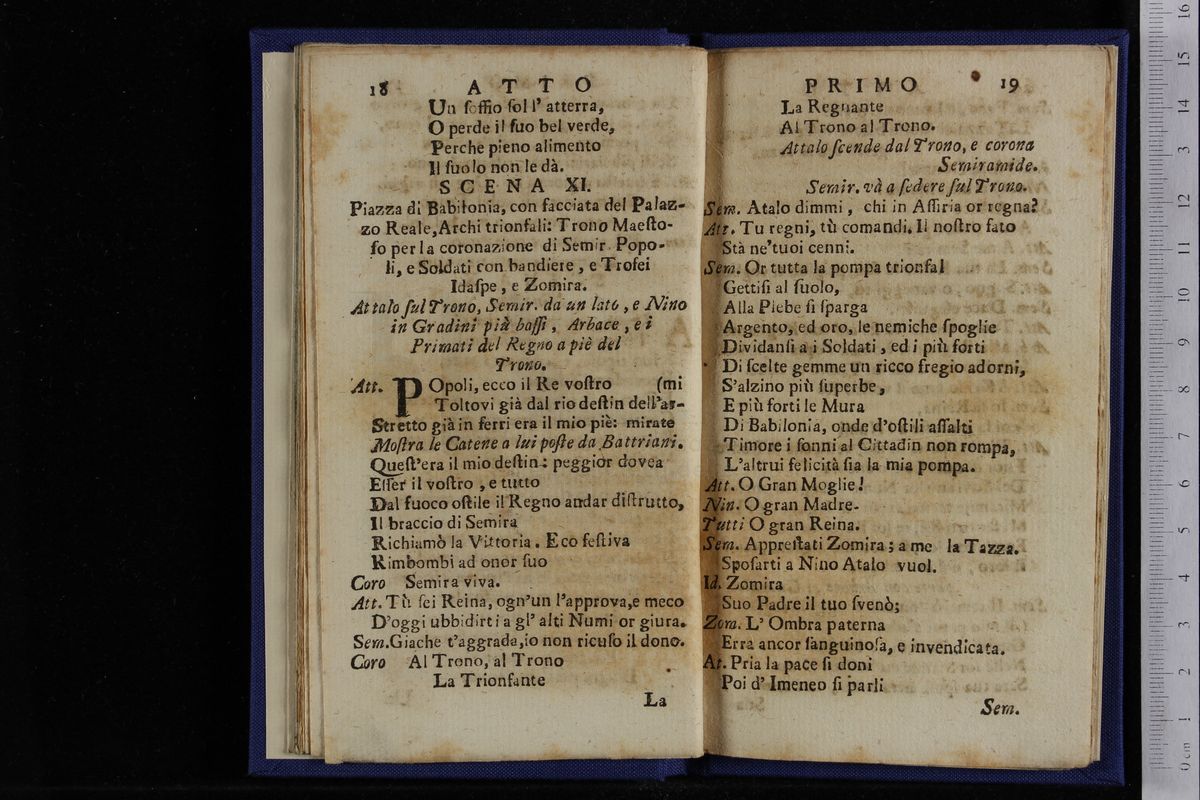 18 ATTO
Un soffio sol l' atterra,
O perde il ſuo bel verde,
Perche pieno alimento
Il ſuolo non le dà.
SCENA XI.
Piazza di Babilonia, con facciata del Palaz-
zo Reale, Archi trionfali: Trono Maeſto-
ſo per la coronazione di Semir. Popo-
li, e Soldati con bandiere, e Trofei
Idaſpe, e Zomira.
Attalo ſul Trono, Semir. da un lato, e Nino
in Gradini più baſſi, Arbace, e i
Primati del Regno a piè del
Trono.
Att. POpoli, ecco il Re voſtro (mi
Toltovi già dal rio deſtin dell'ar-
Stretto già in ferri era il mio piè: mirate
Moſtra le Catene a lui poſte da Battriani.
Queſt'era il mio deſtin: peggior dovea
Eſſer il voſtro, e tutto
Dal fuoco oſtile il Regno andar diſtrutto,
Il braccio di Semira
Richiamò la Vittoria. Eco feſtiva
Rimbombi ad onor ſuo
Coro Semira viva.
Att. Tù ſei Reina, ogn'un l'approva, e meco
D'oggi ubbidirti a gl' alti Numi or giura.
Sem. Giache t'aggrada, io non ricuſo il dono.
Coro Al Trono, al Trono
La Trionfante
La
PRIMO 19
La Regnante
Al Trono al Trono.
Attalo ſcende dal Trono, e corona
Semiramide.
Semir. và a ſedere ſul Trono.
Sem. Atalo dimmi, chi in Aſſiria or regna?
Att. Tu regni, tù comandi. Il noſtro fato
Stà ne'tuoi cenni.
Sem. Or tutta la pompa trionfal
Gettiſi al ſuolo,
Alla Plebe ſi ſparga
Argento, ed oro, le nemiche ſpoglie
Dividanſi a i Soldati, ed i più forti
Di ſcelte gemme un ricco fregio adorni,
S'alzino più ſuperbe,
E più forti le Mura
Di Babilonia, onde d'oſtili aſſalti
Timore i ſonni al Cittadin non rompa,
L'altrui felicità ſia la mia pompa.
Att. O Gran Moglie!
Nin. O gran Madre.
Tutti O gran Reina.
Sem. Appreſtati Zomira; a me la Tazza.
Spoſarti a Nino Atalo vuol.
Id. Zomira
Suo Padre il tuo ſvenò;
Zom. L' Ombra paterna
Erra ancor ſanguinoſa, e invendicata.
At. Pria la pace ſi doni
Poi d' Imeneo ſi parli
Sem.
16
15
14
13
12
11
10
9
8
7
6
5
4
3
2
1
0 cm